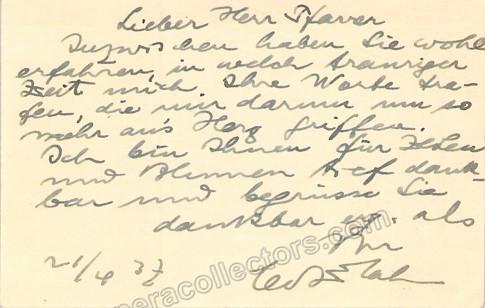 Lieber Herr Pfarrer
Inzwischen haben Sie wohl
erfahren, in welch trauriger
Zeit mich Ihre Worte tra-
fen, die mir darum um so
mehr ans Herz griffen.
Ich bin Ihnen für Zeilen
und Blumen tief dank-
bar und begrüsse Sie
dankbar erg. als
Ihr
21/4 37
operacollectors.com